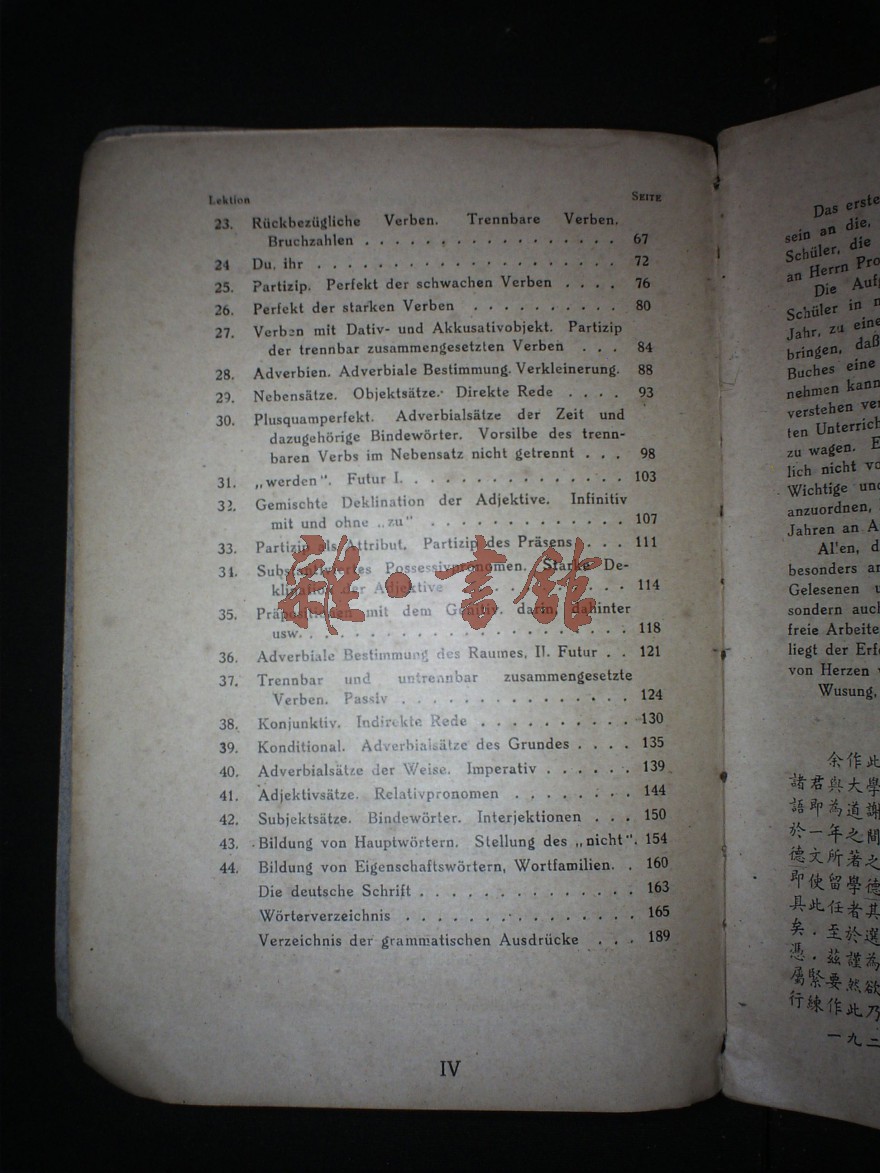 Lektion SEITE
23. Rückbezügliche Verben. Trennbare Verben.
Bruchzahlen . . . . . . . . . . . . . . . . . 67
24 Du, ihr . . . . . . . . . . . . . . . . . . . . 72
25. Partizip. Perfekt der schwachen Verben . . . . 76
26. Perfekt der starken Verben . . . . . . . . . . 80
27. Verben mit Dativ- und Akkusativobjekt. Partizip
der trennbar zusammengesetzten Verben . . . 84
28. Adverbien. Adverbiale Bestimmung. Verkleinerung. 88
29. Nebensätze. Objektsätze. Direkte Rede . . . . 93
30. Plusquamperfekt. Adverbialsätze der Zeit und
dazugehörige Bindewörter. Vorsilbe des trenn-
baren Verbs im Nebensatz nicht getrennt . . . 98
31. „werden". Futur I. . . . . . . . . . . . . . . 103
32. Gemischte Deklination der Adjektive. Infinitiv
mit und ohne „zu" . . . . . . . . . . . . . 107
33. Partizip als Attribut. Partizip des Präsens . . . 111
34. Substantiviertes Possessivpronomen. Starke De-
klination der Adjektive . . . . . . . . . . . 114
35. Präpositionen mit dem Genitiv. darin, dahinter
usw. . . . . . . . . . . . . . . . . . . . . . 118
36. Adverbiale Bestimmung des Raumes, II. Futur . . 121
37. Trennbar und untrennbar zusammengesetzte
Verben. Passiv . . . . . . . . . . . . . . . . 124
38. Konjunktiv. Indirekte Rede . . . . . . . . . . 130
39. Konditional. Adverbialsätze des Grundes . . . . 135
40. Adverbialsätze der Weise. Imperativ . . . . . . 139
41. Adjektivsätze. Relativpronomen . . . . . . . . 144
42. Subjektsätze. Bindewörter. Interjektionen . . . 150
43. Bildung von Hauptwörtern. Stellung des „nicht". 154
44. Bildung von Eigenschaftswörtern, Wortfamilien. . 160
Die deutsche Schrift . . . . . . . . . . . . . 163
Wörterverzeichnis . . . . . . . . . . . . . . . 165
Verzeichnis der grammatischen Ausdrücke . . . 189
IV
雜·書館
Das erste
sein an die,
Schüler, die
an Herrn Pro
Die Aufg
Schüler in
Jahr, zu eine
bringen, daß
Buches eine
nehmen kann
verstehen ver
ten Unterrich
zu wagen. E
lich nicht vo
Wichtige und
anzuordnen,
Jahren an A
Allen, d
besonders an
Gelesenen u
sondern auch
freie Arbeite
liegt der Erf
von Herzen
Wusung,
余作此
諸君與大學
語即為道謝
於一年之間
德文所著之
即使留學德
具此任者其
矣．至於選
憑．茲謹為
屬緊要然欲
行練作此乃
一九二